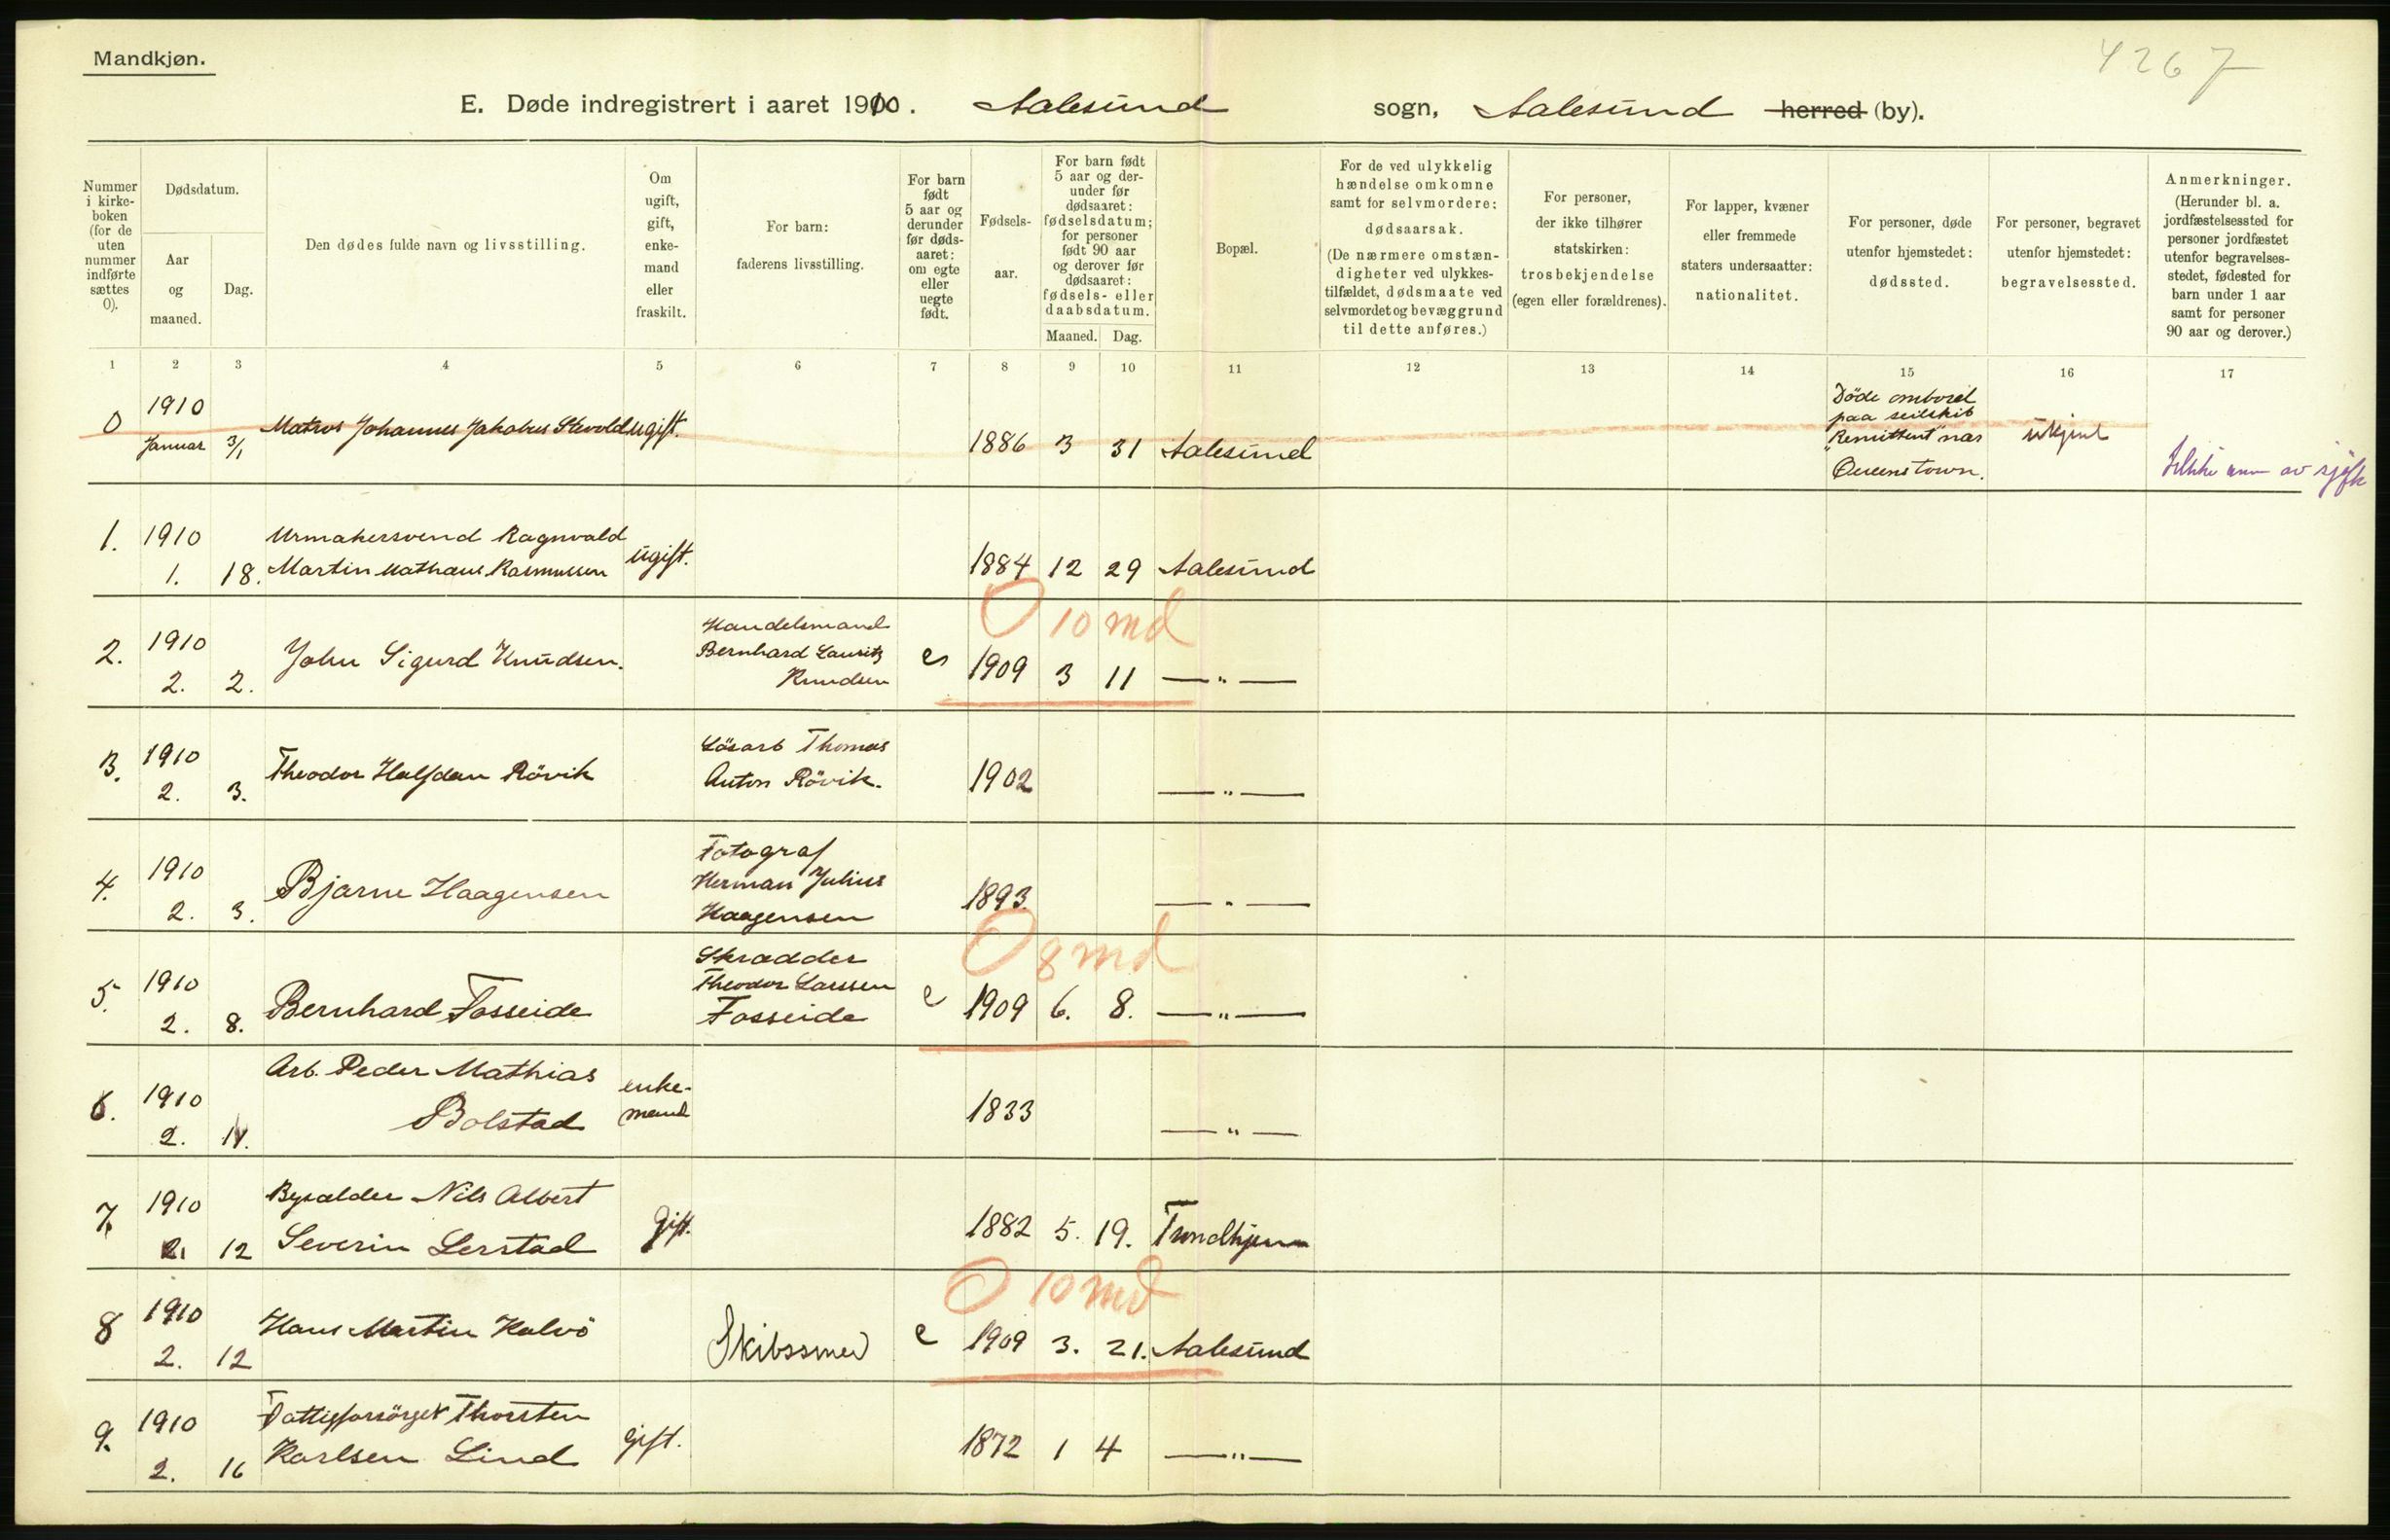 Mandkjøn.
4267
E. Døde indregistrert i aaret 1910. Aalesund sogn, Aalesund herred (by).
Nummer i kirke-boken (for de uten nummer indførte sættes 0).
Dødsdatum.
Aar og maaned.
Dag.
Den dødes fulde navn og livsstilling.
Om ugift, gift, enke-mand eller fraskilt.
For barn: faderens livsstilling.
For barn født 5 aar og derunder før døds-aaret: om egte eller uegte født.
Fødsels-aar.
For barn født 5 aar og der-under før dødsaaret: fødselsdatum; for personer født 90 aar og derover før dødsaaret: fødsels- eller daabsdatum.
Maaned. Dag.
Bopæl.
For de ved ulykkelig hændelse omkomne samt for selvmordere: dødsaarsak. (De nærmere omstæn-digheter ved ulykkes-tilfældet, dødsmaate ved selvmordet og bevæggrund til dette anføres.)
For personer, der ikke tilhører statskirken: trosbekjendelse (egen eller forældrenes).
For lapper, kvæner eller fremmede staters undersaatter: nationalitet.
For personer, døde utenfor hjemstedet: dødssted.
For personer, begravet utenfor hjemstedet: begravelsessted.
Anmerkninger. (Herunder bl. a. jordfæstelsessted for personer jordfæstet utenfor begravelses-stedet, fødested for barn under 1 aar samt for personer 90 aar og derover.)
1 2 3 4 5 6 7 8 9 10 11 12 13 14 15 16 17
0 1910 Januar 3/1 Matros Johannes Jakobus Stevold ugift. 1886 3 31 Aalesund
Döde ombord
paa seilskib
"Remittent" nær
Queenstown.
ukjent
av sjøfk
1. 1910 1. 18. Urmakersvend Ragnvald
Martin Mathæus Rasmussen ugift. 1884 12 29 Aalesund
0 10 md
2. 1910 2. 2. John Sigurd Knudsen. Handelsmand
Bernhard Lauritz
Knudsen e 1909 3 11 —„—
3. 1910 2. 3. Theodor Halfdan Rövik Lösarb Thomas
Anton Rövik. 1902 —„—
4. 1910 2. 3. Bjarne Haagensen Fotograf
Herman Julius
Haagensen 1893 —„—
0 8 md
5. 1910 2. 8. Bernhard Fosseide Skrædder
Theodor Larssen
Fosseide e 1909 6. 8. —„—
6. 1910 2. 11. Arb. Peder Mathias
Bolstad enke-
mand 1833 —„—
7. 1910 2. 12 Nils Albert
Severin Lerstad gift. 1882 5. 19. Trondhjem
0 10 md
8 1910 2. 12 Hans Martin Kalvö Skibssmed e 1909 3. 21. Aalesund
9. 1910 2. 16 Fattigforsörget Thorsten
Karlsen Lind gift. 1872 1 4 —„—